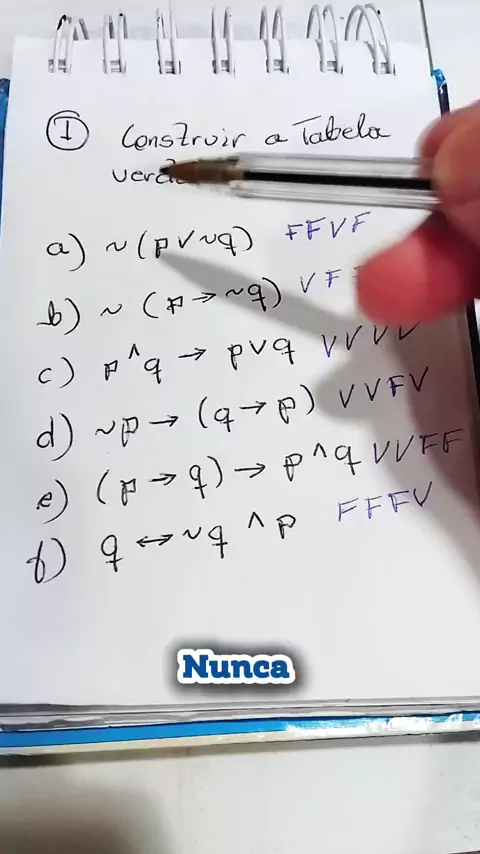 1 Construir a Tabela
verda
a) ~(p∨~q) FFVF
b) ~(p→~q) VF
c) p^q → p∨q VVVV
d) ~p→(q→p) VVFV
e) (p→q)→ p^q VVFF
f) q↔~q ^p FFFV
Nunca